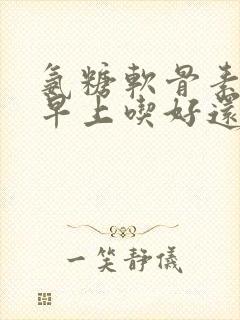 氨糖軟骨素
早上喫好還
一笑靜儀